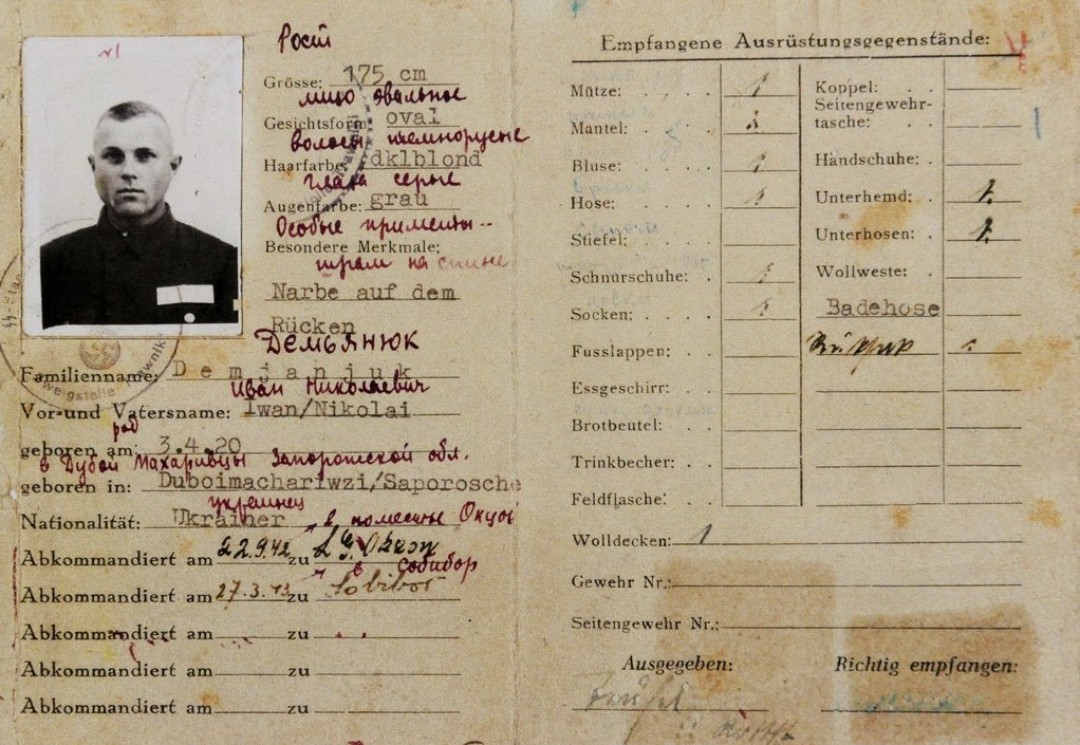 Рост
Grösse: 175 cm
лицо овальное
Gesichtsform: oval
волосы темнорусые
Haarfarbe: dklblond
глаза серые
Augenfarbe: grau
Особые приметы--
Besondere Merkmale:
шрам на спине
Narbe auf dem
Rücken
Демьянюк
Familienname: Demjanjuk
Иван Николаевич
Vor-und Vatersname: Iwan/Nikolai
род
geboren am: 3.4.20
в Дубой Махаривцы Запорожской обл.
geboren in: Duboimachariwzi/Saporosche
украинец
Nationalität: Ukrainer
в поместье Окцов
Abkommandiert am 22.9.42 zu L.G. Okzow
в Собибор
Abkommandiert am 27.3.43 zu Sobibor
Abkommandiert am zu
Abkommandiert am zu
Abkommandiert am zu
Empfangene Ausrüstungsgegenstände:
Mütze: 1
Mantel: 1
Bluse: 1
Hose: 1
Stiefel:
Schnürschuhe: 1
Socken: 1
Fusslappen:
Essgeschirr:
Brotbeutel:
Trinkbecher:
Feldflasche:
Koppel:
Seitengewehr-
tasche:
Handschuhe:
Unterhemd: 1.
Unterhosen: 1.
Wollweste:
Badehose
Wolldecken: 1
Gewehr Nr.:
Seitengewehr Nr.:
Ausgegeben: Richtig empfangen: